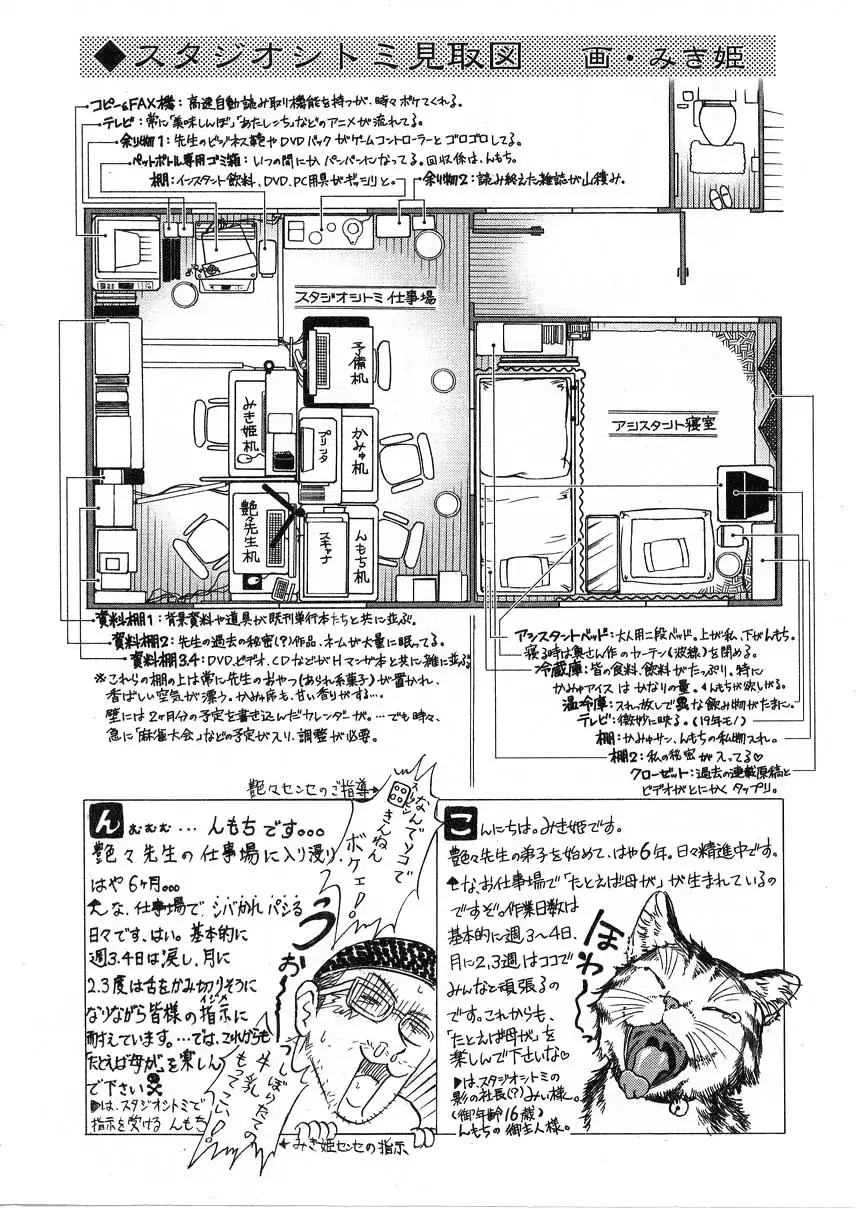 ◆スタジオシトミ見取図　画・みき姫
コピー&FAX機：高速自動読み取り機能を持つが、時々ボケてくれる。
テレビ：常に「美味しんぼ」「あたしンち」などのアニメが流れてる。
余り物1：先生のビジネス鞄やDVDパックがゲームコントローラーとゴロゴロしてる。
ペットボトル専用ゴミ箱：いつの間にかパンパンになってる。回収係は、んもち。
棚：インスタント飲料、DVD、PC用具がギッシリと。
余り物2：読み終えた雑誌が山積み。
スタジオシトミ仕事場
予備机
みき姫机
プリンタ
かみゅ机
アシスタント寝室
艶々先生机
スキャナ
んもち机
資料棚1：背景資料や道具が既刊単行本たちと共に並ぶ。
資料棚2：先生の過去の秘密(?)作品、ネームが大量に眠ってる。
資料棚3.4：DVD、ビデオ、CDなどがHマンガ本と共に雑に並ぶ。
※これらの棚の上は常に先生のおやつ(あられ系菓子)が置かれ、
香ばしい空気が漂う。かみゅ席も、甘い香りがする…。
壁には2ヶ月分の予定を書き込んだカレンダーが。…でも時々、
急に「麻雀大会」などの予定が入り、調整が必要。
アシスタントベッド：大人用二段ベッド。上が私、下がんもち。
寝る時は奥さん作のカーテン(波線)を閉める。
冷蔵庫：皆の食料、飲料がたっぷり。特に
かみゅアイスはかなりの量。んもちが欲しがる。
温冷庫：スれ放しで異な飲み物がたまに。
テレビ：微妙に映る。(19年モノ)
棚：かみゅサン、んもちの私物入れ。
棚2：私の秘密が入ってる♡
クローゼット：過去の連載原稿と
ビデオがとにかくタップリ。
艶々センセのご指導→
なんでソコで
きんねん
ボケェ!
ん むむむ…んもちです。。。
艶々先生の仕事場に入り浸り、
はや6ヶ月。。。
そんな、仕事場でシバかれパシる
日々です、はい。基本的に
週3.4日は涙し、月に
2.3度は舌をかみ切りそうに
なりながら皆様の指示に
イジメ
耐えています。…では、これからも
「たとえば母が」を楽しんで
下さい
▶は、スタジオシトミで
指示を受ける んもち
うっ
おー
しぼりたての
牛乳
もってこい!
←みき姫センセの指示
こんにちは。みき姫です。
艶々先生の弟子を始めて、はや6年。日々精進中です。
そんな、お仕事場で「たとえば母が」が生まれているの
ですぞ。作業日数は
基本的に週3〜4日、
月に2,3週はココで
みんなと頑張るの
です。これからも、
「たとえば母が」を
楽しんで下さいな♡
▶は、スタジオシトミの
影の社長(?)みい様。
(御年齢16歳)
んもちの御主人様。
ほわ〜っ